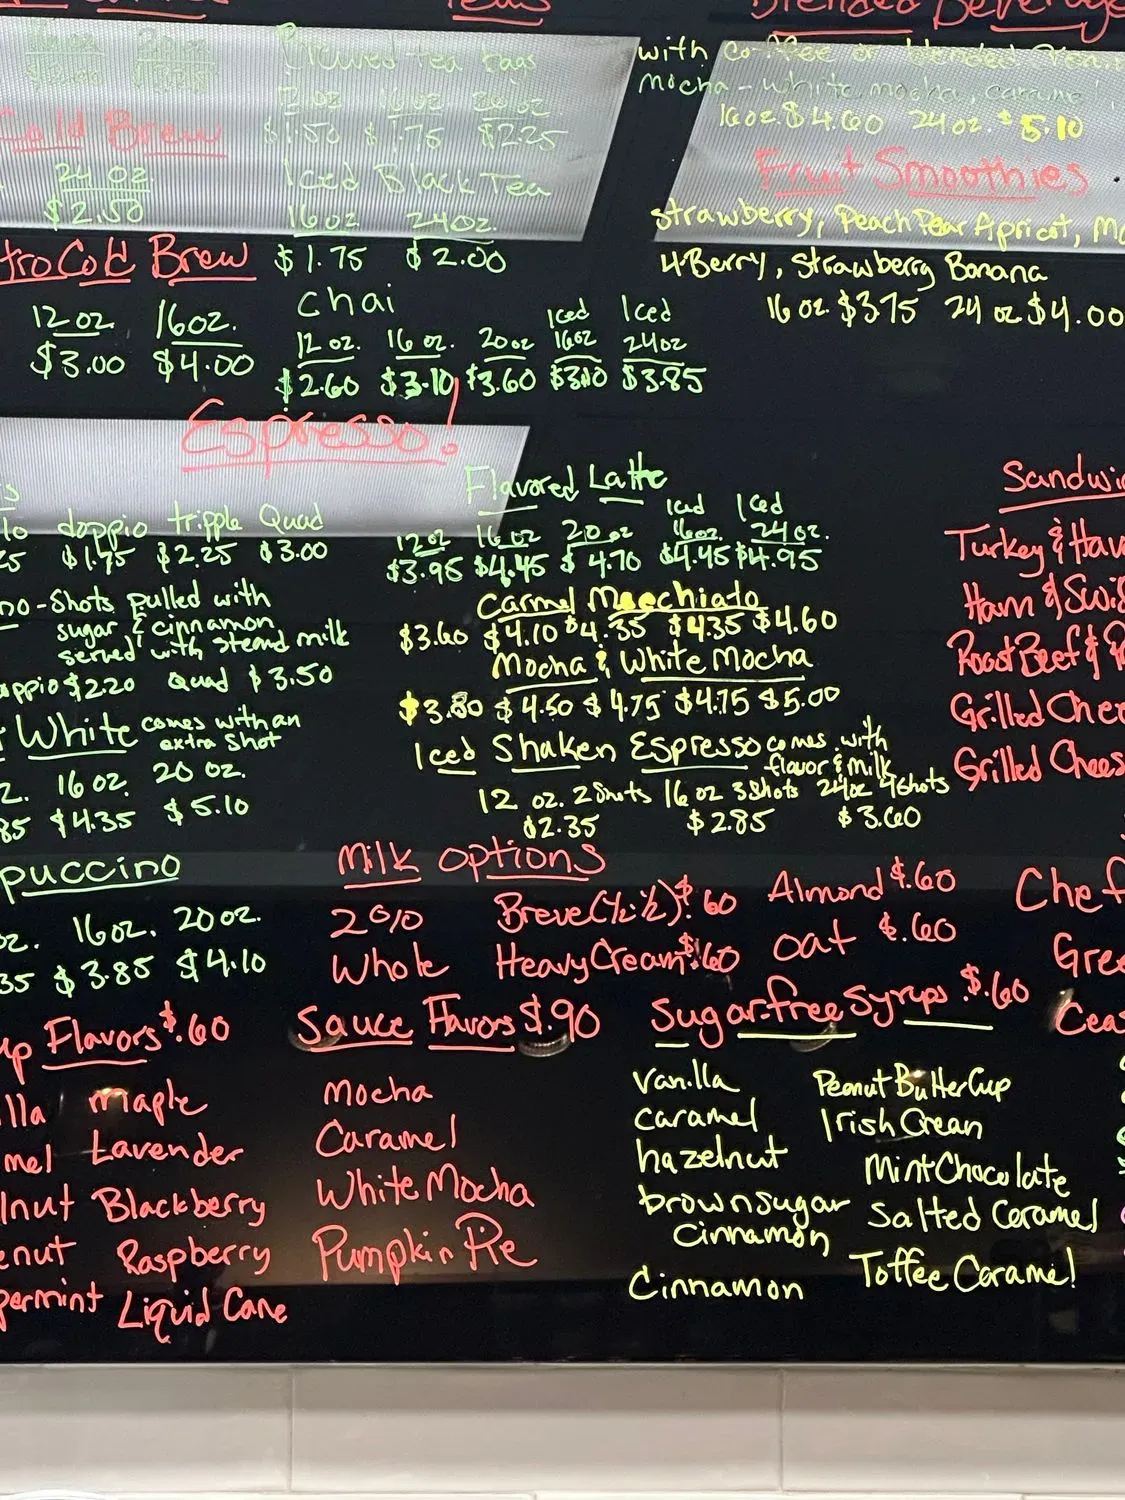 Teas
Blended Beverag
Brewed tea bags
12 oz 16 oz 20 oz.
$1.50 $1.75 $2.25
Iced Black Tea
16oz 24oz.
$1.75 $2.00
Chai
12 oz. 16 oz. 20 oz Iced 16oz Iced 24oz
$2.60 $3.10 $3.60 $3.10 $3.85
with coffee or
mocha - white mocha, caramel
16oz. $4.60 24oz. $5.10
Fruit Smoothies
strawberry, Peach Pear Apricot, M
4-Berry, Strawberry Banana
16 oz. $3.75 24 oz. $4.00
Cold Brew
24 oz
$2.50
tro Cold Brew
12 oz 16oz.
$3.00 $4.00
Espresso!
doppio tripple Quad
$1.75 $2.25 $3.00
no - Shots pulled with
sugar & cinnamon
served with steamd milk
oppio $2.20 Quad $3.50
White comes with an
extra shot
16 oz. 20 oz.
85 $4.35 $5.10
puccino
oz. 16oz. 20oz.
35 $3.85 $4.10
Flavored Latte
12oz 16oz 20oz Iced 16oz. Iced 24oz.
$3.95 $4.45 $4.70 $4.45 $4.95
Carmel Macchiato
$3.60 $4.10 $4.35 $4.35 $4.60
Mocha & White Mocha
$3.80 $4.50 $4.75 $4.75 $5.00
Iced Shaken Espresso comes with
flavor & milk
12 oz. 2 Shots 16 oz 3 Shots 24oz 4 Shots
$2.35 $2.85 $3.60
Sandwi
Turkey & Hav
Ham & Swi
Roast Beef &
Grilled Chee
Grilled Chees
Milk Options
2%
Whole
Breve (½ & ½) $.60
Heavy Cream $.60
Almond $.60
Oat $.60
Chef
Gree
Ceas
up Flavors $.60
illa Maple
mel Lavender
lnut Blackberry
enut Raspberry
permint Liquid Cane
Sauce Flavors $.90
Mocha
Caramel
White Mocha
Pumpkin Pie
Sugar-free Syrups $.60
vanilla
caramel
hazelnut
brown sugar
cinnamon
Cinnamon
Peanut Butter Cup
Irish Crean
Mint Chocolate
Salted Caramel
Toffee Caramel